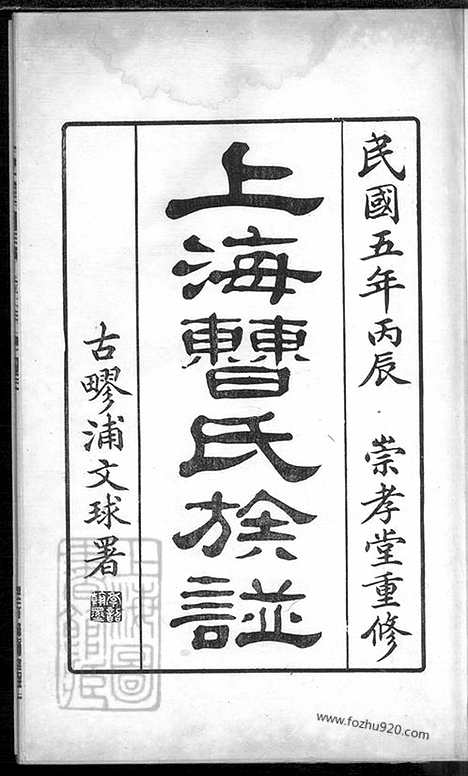 民國五年丙辰 崇孝堂重修
上海曹氏族譜
古疁浦文球署
上海圖書館藏
www.fozhu920.com